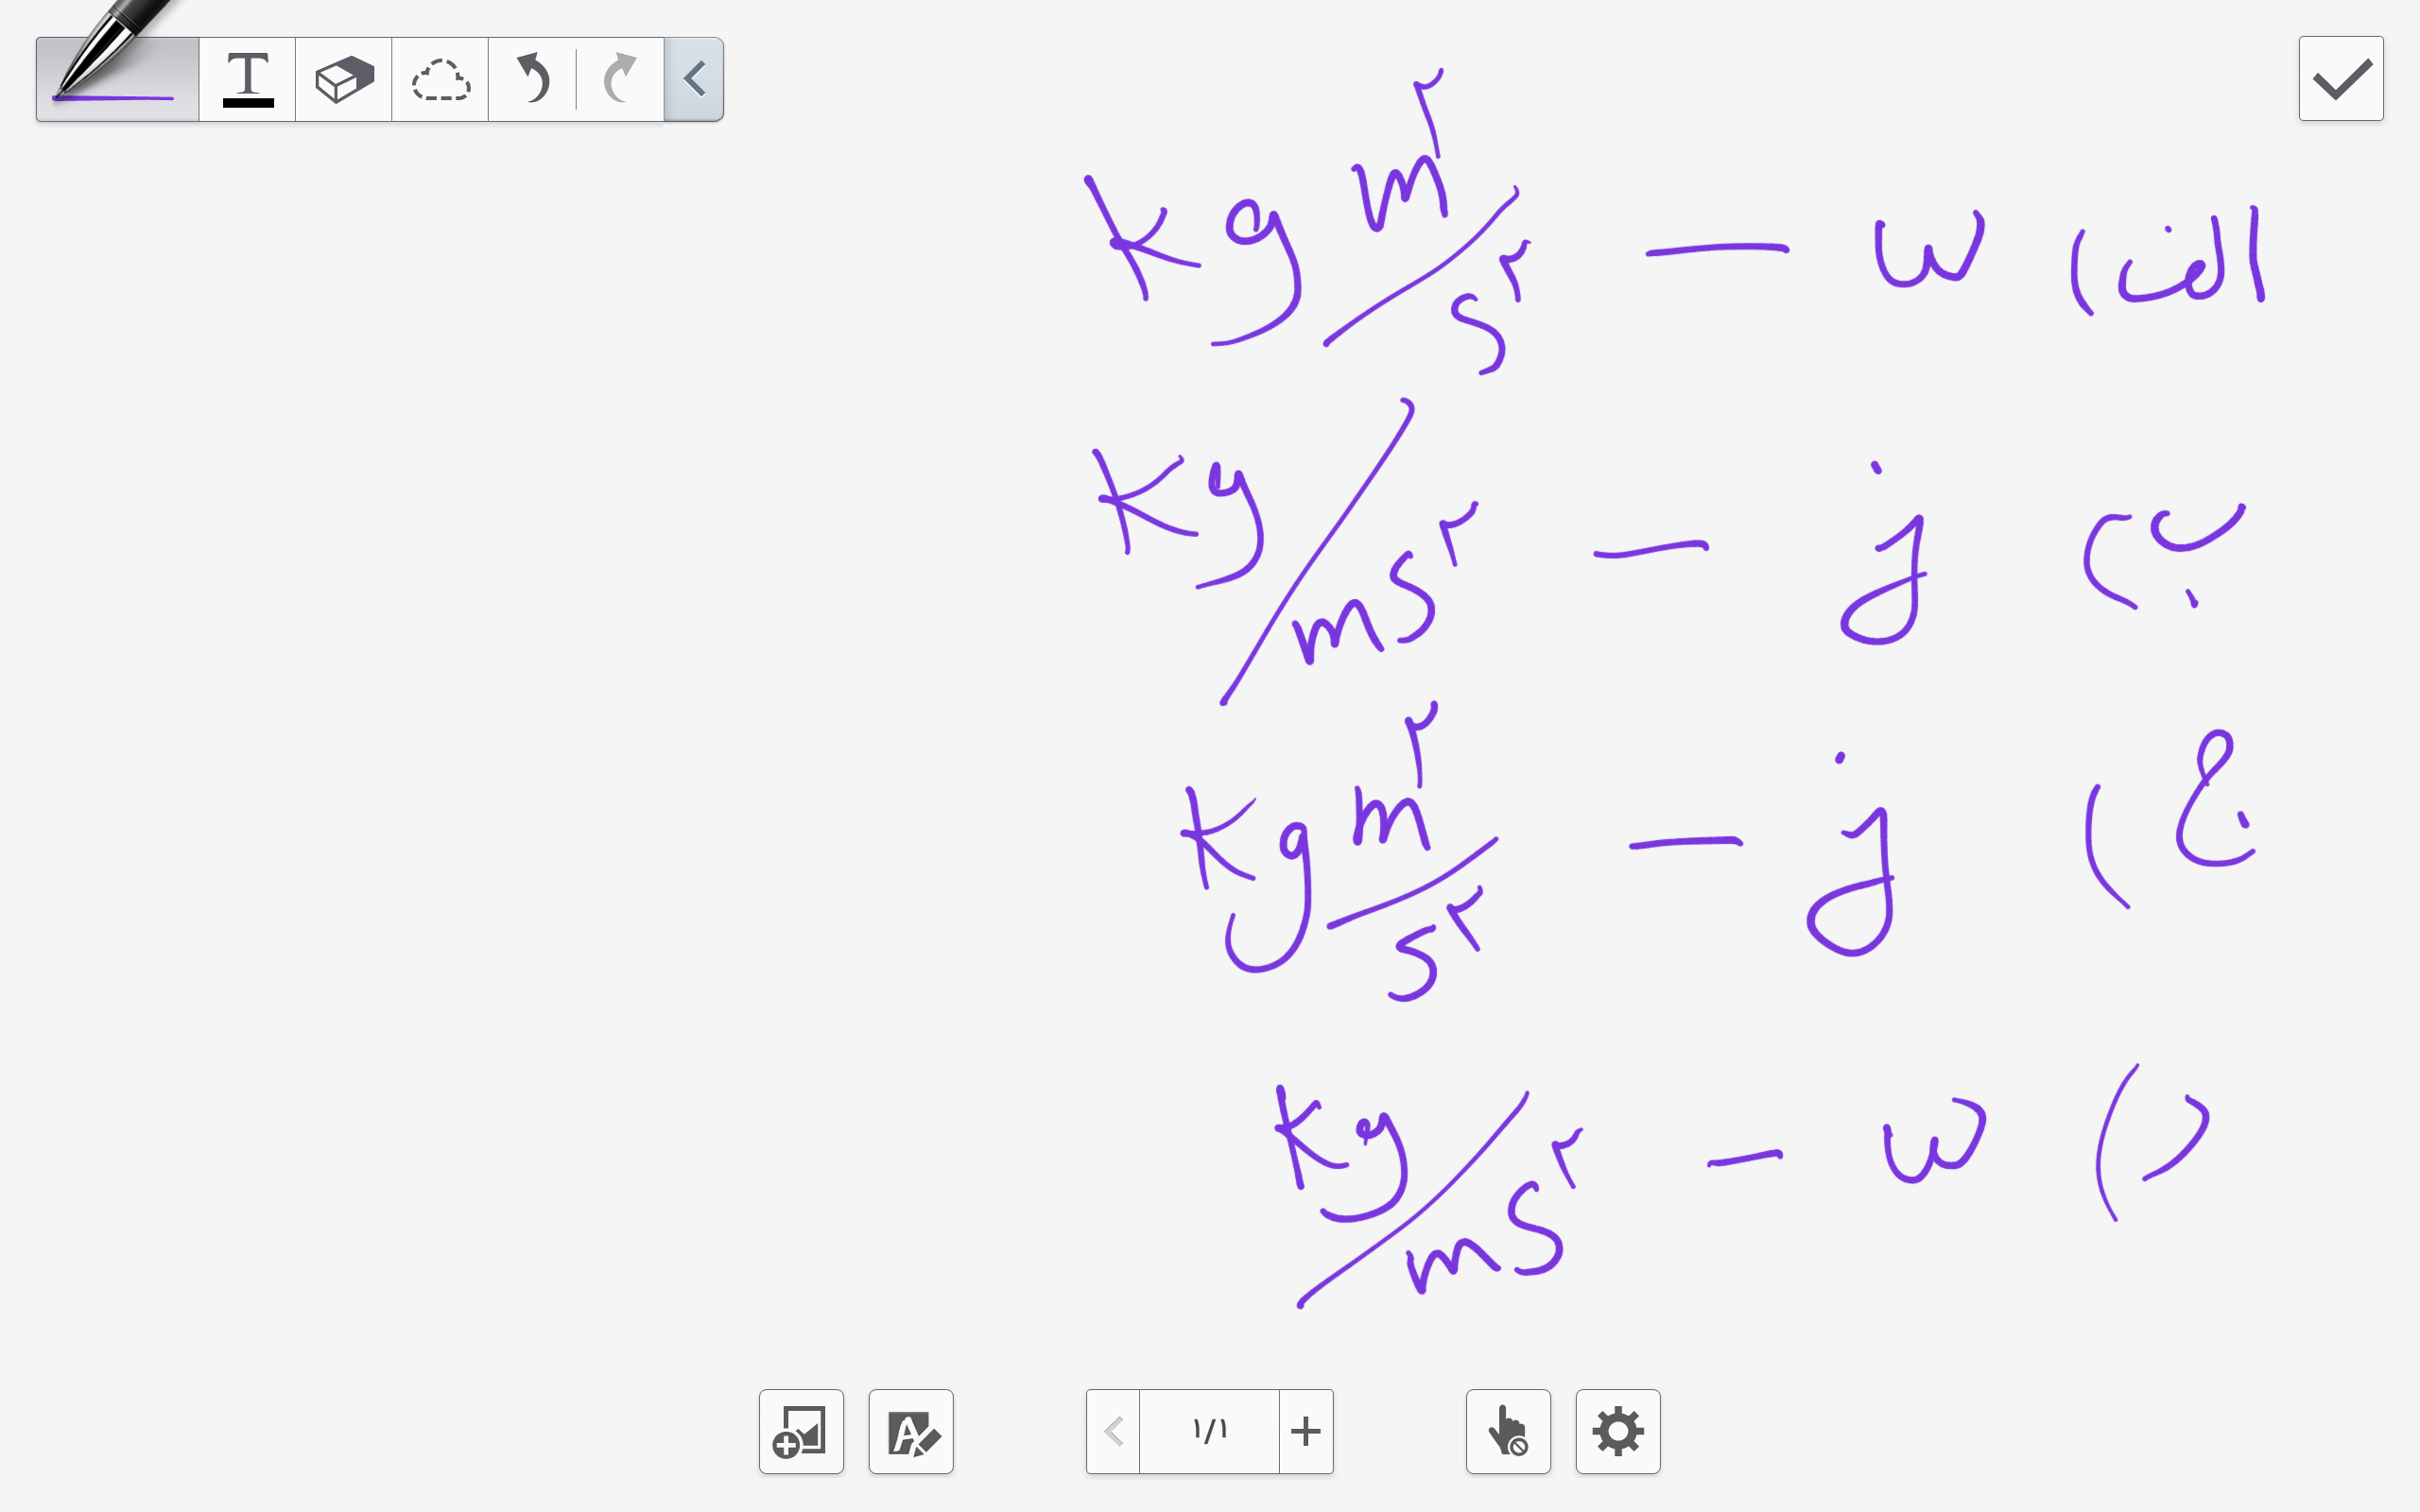 الف) w — kg m²/s²
ب) j — kg/ms²
ج) j — kg m²/s²
د) w — kg/ms²
T
۱/۱